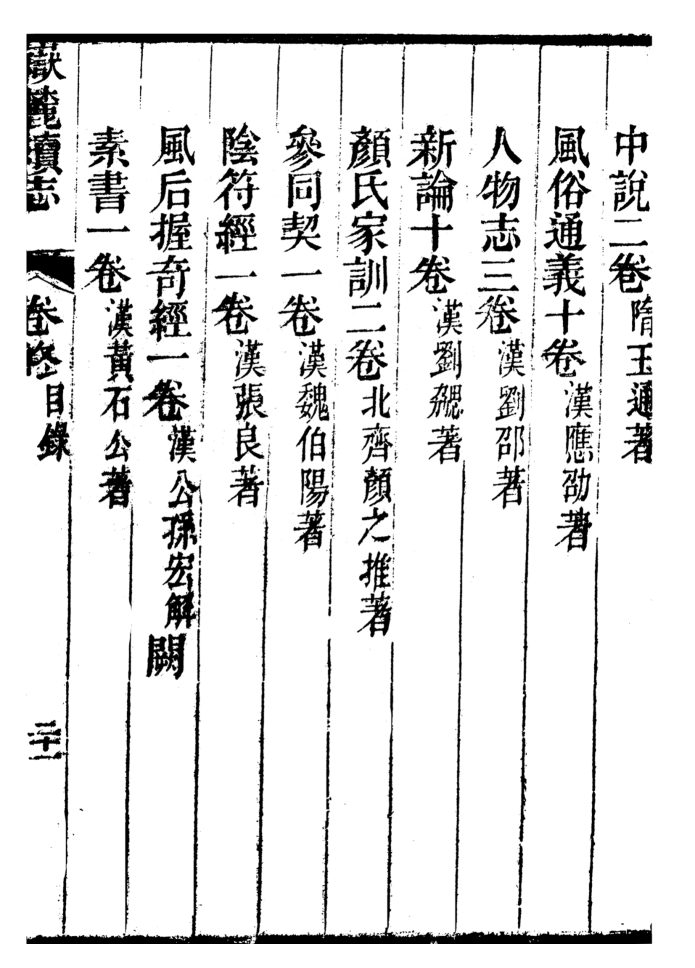 中說二卷隋王通著
風俗通義十卷漢應劭著
人物志三卷漢劉邵著
新論十卷漢劉勰著
顏氏家訓二卷北齊顏之推著
參同契一卷漢魏伯陽著
陰符經一卷漢張良著
風后握奇經一卷漢公孫宏解闕
素書一卷漢黃石公著
嶽麓續志 卷終 目錄 二十一